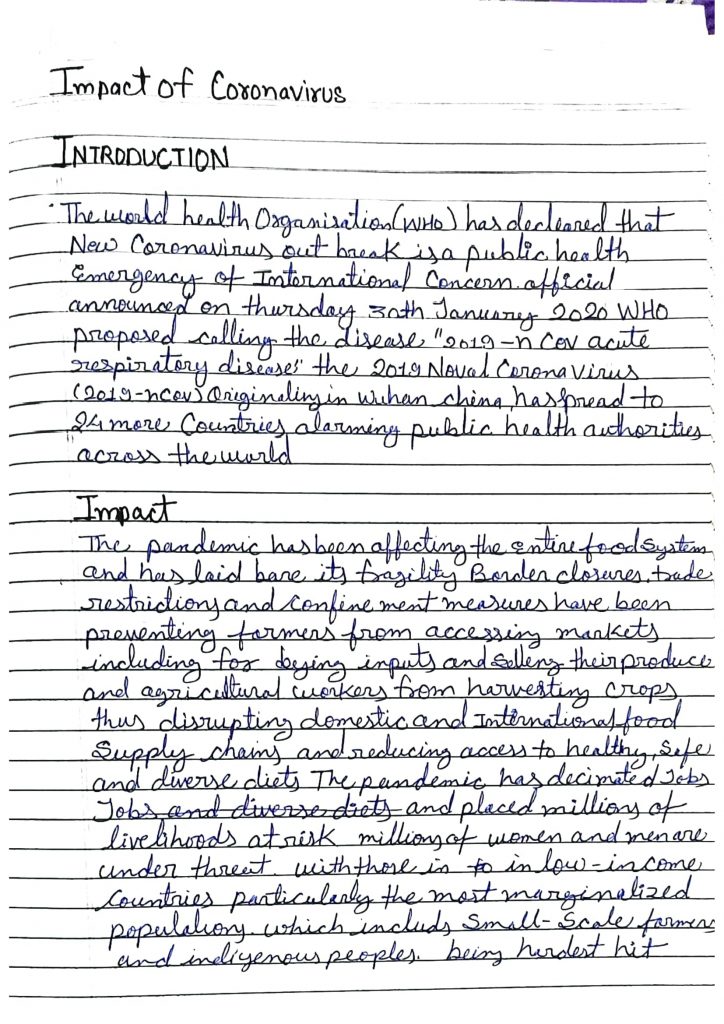 Impact of Coronavirus
INTRODUCTION
The world health Organisation (WHO) has decleared that
New Coronavirus out break is a public health
Emergency of International Concern. official
announced on thursday 30th January 2020 WHO
proposed calling the disease "2019-n Cov acute
respiratory disease" the 2019 Noval Corona Virus
(2019-ncov) Originaling in wuhan china, has spread to
24 more Countries alarming public health authorities
across the world
Impact
The pandemic has been affecting the entire food system
and has laid bare its fragility Border closures, trade
restrictions and confine ment measures have been
preventing farmers from accessing markets
including for buying inputs and selleng their produce
and agricultural workers from harvesting crops
thus disrupting domestic and International food
Supply chains and reducing access to healthy, Safe
and diverse diets The pandemic has decimated Jobs
Jobs and diverse diets and placed millions of
livelihoods at risk millions of women and men are
under threat. with those in to in low-income
Countries particularly the most marginalized
populations. which includs Small-Scale farmers
and indigenous peoples. being hardest hit